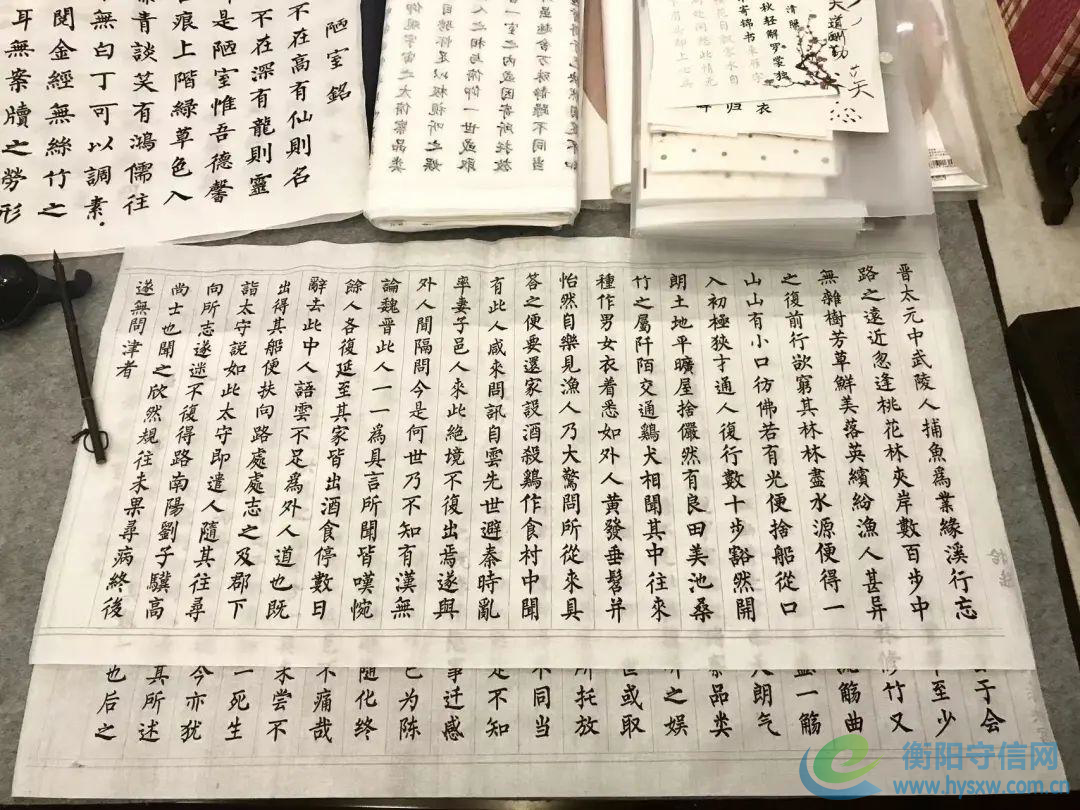 陋室銘
不在高有仙則名
不在深有龍則靈
是陋室惟吾德馨
痕上階綠草色入
青談笑有鴻儒往
無白丁可以調素
閱金經無絲竹之
耳無案牘之勞形
舍万殊静躁不同当
一室之内或因寄所托放
人之相与俯仰一世或取
足以极视听之娱
宇宙之大俯察品类
天道酬勤
晉太元中武陵人捕魚爲業緣溪行忘
路之遠近忽逢桃花林夾岸數百步中
無雜樹芳草鮮美落英繽紛漁人甚异
之復前行欲窮其林林盡水源便得一
山山有小口彷佛若有光便捨船從口
入初極狹才通人復行數十步豁然開
朗土地平曠屋捨儼然有良田美池桑
竹之屬阡陌交通鷄犬相聞其中往來
種作男女衣着悉如外人黃發垂髫并
怡然自樂見漁人乃大驚問所從來具
答之便要還家設酒殺鷄作食村中聞
有此人咸來問訊自雲先世避秦時亂
率妻子邑人來此絕境不復出焉遂與
外人間隔問今是何世乃不知有漢無
論魏晉此人一一為具言所聞皆嘆惋
餘人各復延至其家皆出酒食停數日
辭去此中人語雲不足爲外人道也既
出得其船便扶向路處處志之及郡下
詣太守説如此太守即遣人隨其往尋
向所志遂迷不復得路南陽劉子驥高
尚士也聞之欣然規往未果尋病終後
遂無問津者
于会
至少
修竹又
觴曲
一觴
朗气
品类
之娱
或取
所托放
不同当
不知
事迁感
已为陈
随化终
不痛哉
未尝不
一死生
今亦犹
其所述
也后之
衡阳守信网
www.hysxw.com.cn